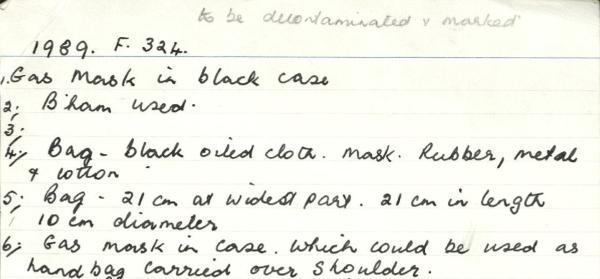 to be decontaminated & marked
1989. F. 324.
1. Gas Mask in black case
2; B'ham used.
3;
4; Bag - black oiled cloth. Mask. Rubber, metal
& cotton
5; Bag - 21 cm at widest part. 21 cm in length
10 cm diameter
6; Gas mask in case. Which could be used as
handbag carried over shoulder.